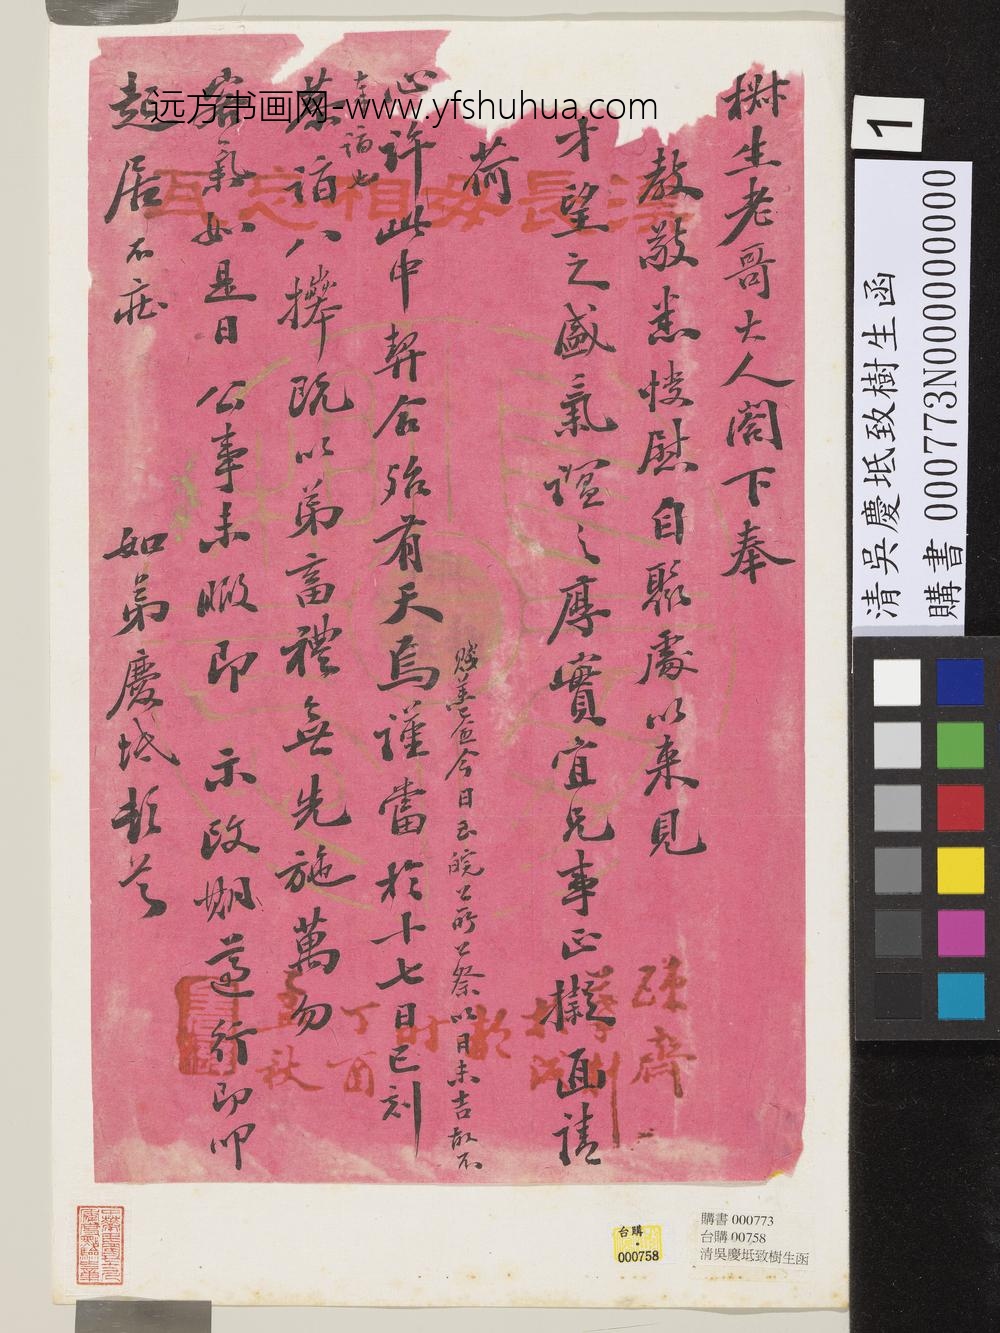 樹生老哥大人閣下奉
教敬悉忮慰自聚處以来見
才望之盛氣誼之厚實宜兄事正擬面請
荷
心許此中契合殆有天焉謹當於十七日巳刻
恭詣八擀既以弟畜禮無先施萬勿
客氣如是日公事未暇即示改期遵行即叩
起居不莊
如弟慶坻頓首
今日
以日未吉故不
去詣也
漢長毋相忘瓦
疎齋
丁酉
孟秋
远方书画网-www.yfshuhua.com
1
清吳慶坻致樹生函
購書 000773N000000000
台購
000758
購書 000773
台購 00758
清吳慶坻致樹生函